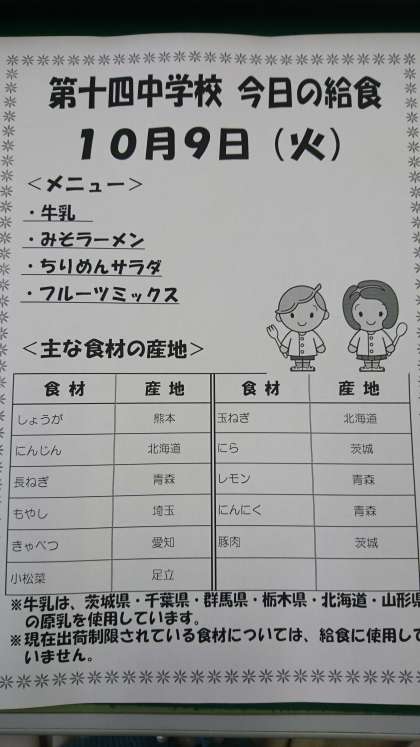 第十四中学校 今日の給食
１０月９日（火）
＜メニュー＞
・牛乳
・みそラーメン
・ちりめんサラダ
・フルーツミックス
＜主な食材の産地＞
食材 産地 食材 産地
しょうが 熊本 玉ねぎ 北海道
にんじん 北海道 にら 茨城
長ねぎ 青森 レモン 青森
もやし 埼玉 にんにく 青森
きゃべつ 愛知 豚肉 茨城
小松菜 足立
※牛乳は、茨城県・千葉県・群馬県・栃木県・北海道・山形県
の原乳を使用しています。
※現在出荷制限されている食材については、給食に使用して
いません。